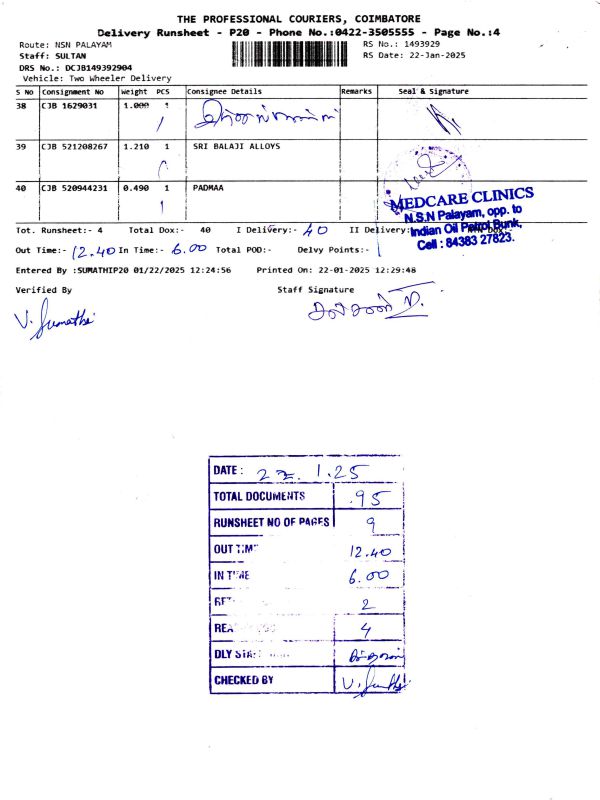 THE PROFESSIONAL COURIERS, COIMBATORE
Delivery Runsheet - P20 - Phone No.:0422-3505555 - Page No.:4
Route: NSN PALAYAM
RS No.: 1493929
Staff: SULTAN
RS Date: 22-Jan-2025
DRS No.: DCJB149392904
Vehicle: Two Wheeler Delivery
S No Consignment No Weight PCS Consignee Details Remarks Seal & Signature
38 CJB 1629031 1.000 1
39 CJB 521208267 1.210 1 SRI BALAJI ALLOYS
40 CJB 520944231 0.490 1 PADMAA
MEDCARE CLINICS
N.S.N Palayam, opp. to
Indian Oil Petrol Bunk,
Cell : 84383 27823.
Tot. Runsheet:- 4 Total Dox:- 40 I Delivery:- 40 II Delivery:
Out Time:- 12.40 In Time:- 6.00 Total POD:- Delvy Points:-
Entered By :SUMATHIP20 01/22/2025 12:24:56 Printed On: 22-01-2025 12:29:48
Verified By Staff Signature
V. Sumathi
DATE : 22. 1.25
TOTAL DOCUMENTS 95
RUNSHEET NO OF PAGES 9
OUT TIME 12.40
IN TIME 6.00
2
4
DLY
CHECKED BY V. Sumathi